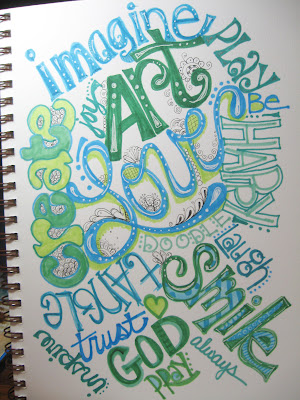 imagine
PLAY
create
joy
ART
BE
HAPPY
Love
laugh
Smile
trust
GOD
always
inspire
PRAY